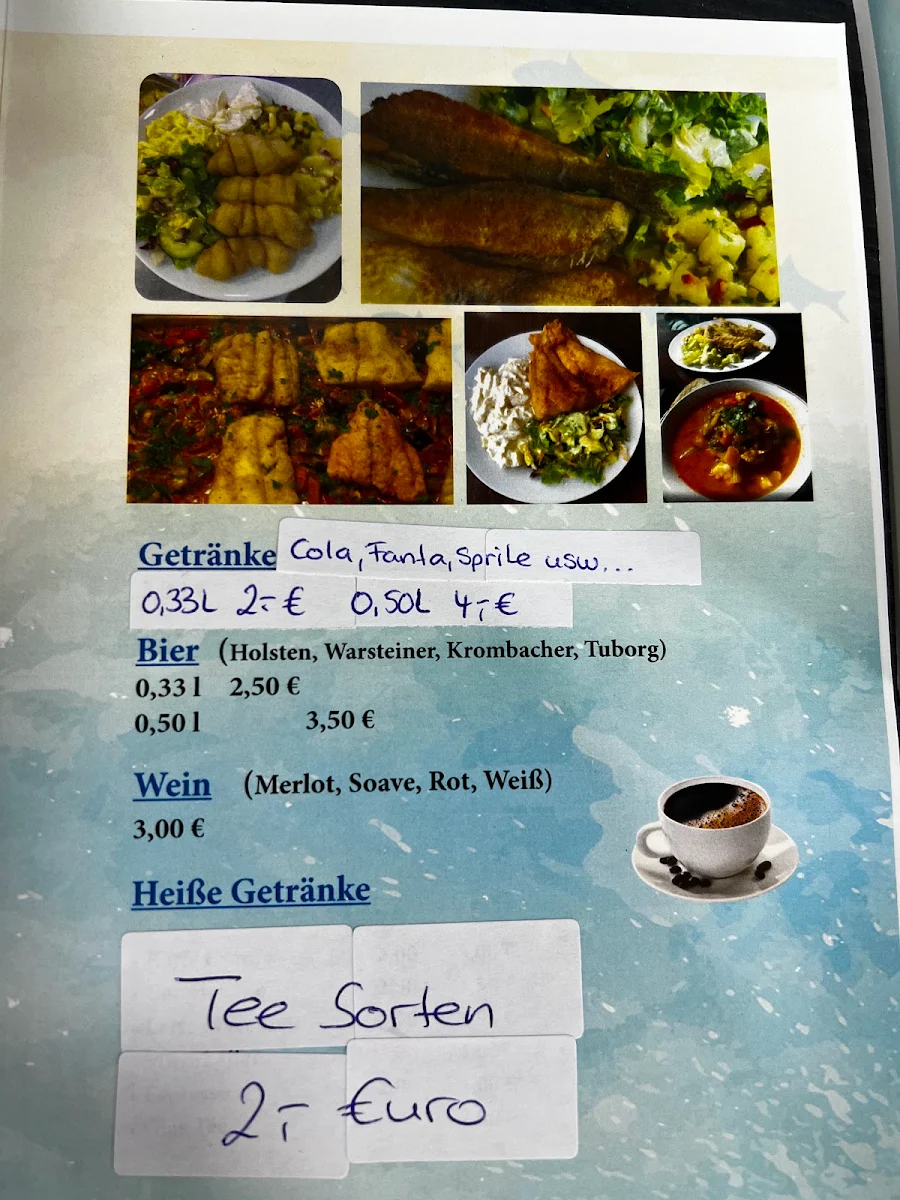 Getränke Cola, Fanta, Sprite usw...
0,33L 2,- € 0,50L 4,- €
Bier (Holsten, Warsteiner, Krombacher, Tuborg)
0,33 l 2,50 €
0,50 l 3,50 €
Wein (Merlot, Soave, Rot, Weiß)
3,00 €
Heiße Getränke
Tee Sorten
2,- Euro